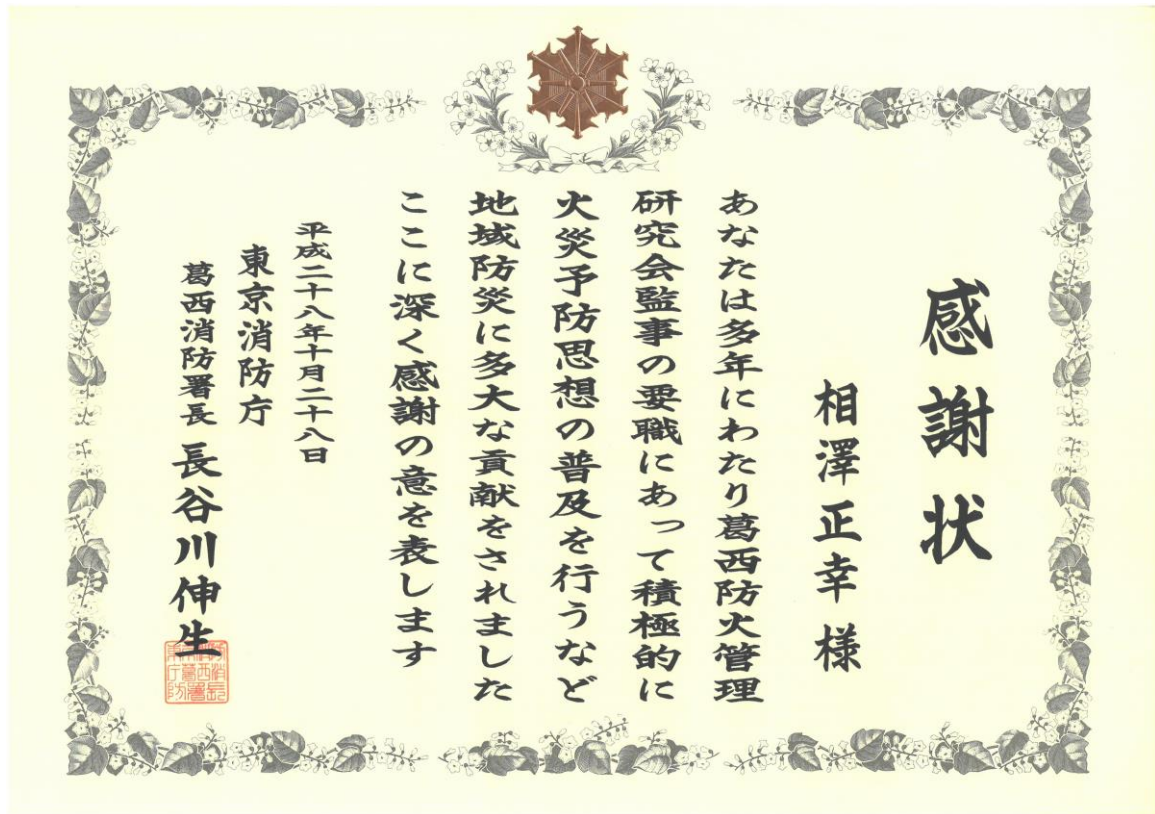 感謝状
相澤正幸様
あなたは多年にわたり葛西防火管理
研究会監事の要職にあって積極的に
火災予防思想の普及を行うなど
地域防災に多大な貢献をされました
ここに深く感謝の意を表します
平成二十八年十月二十八日
東京消防庁
葛西消防署長 長谷川伸生